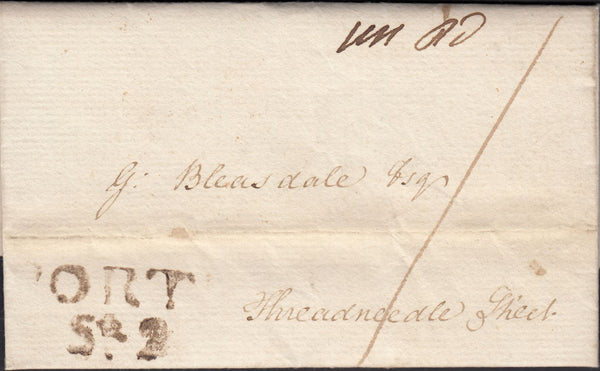 G: Bleasdale Esqr
Threadneedle Street
ORT
St. 2